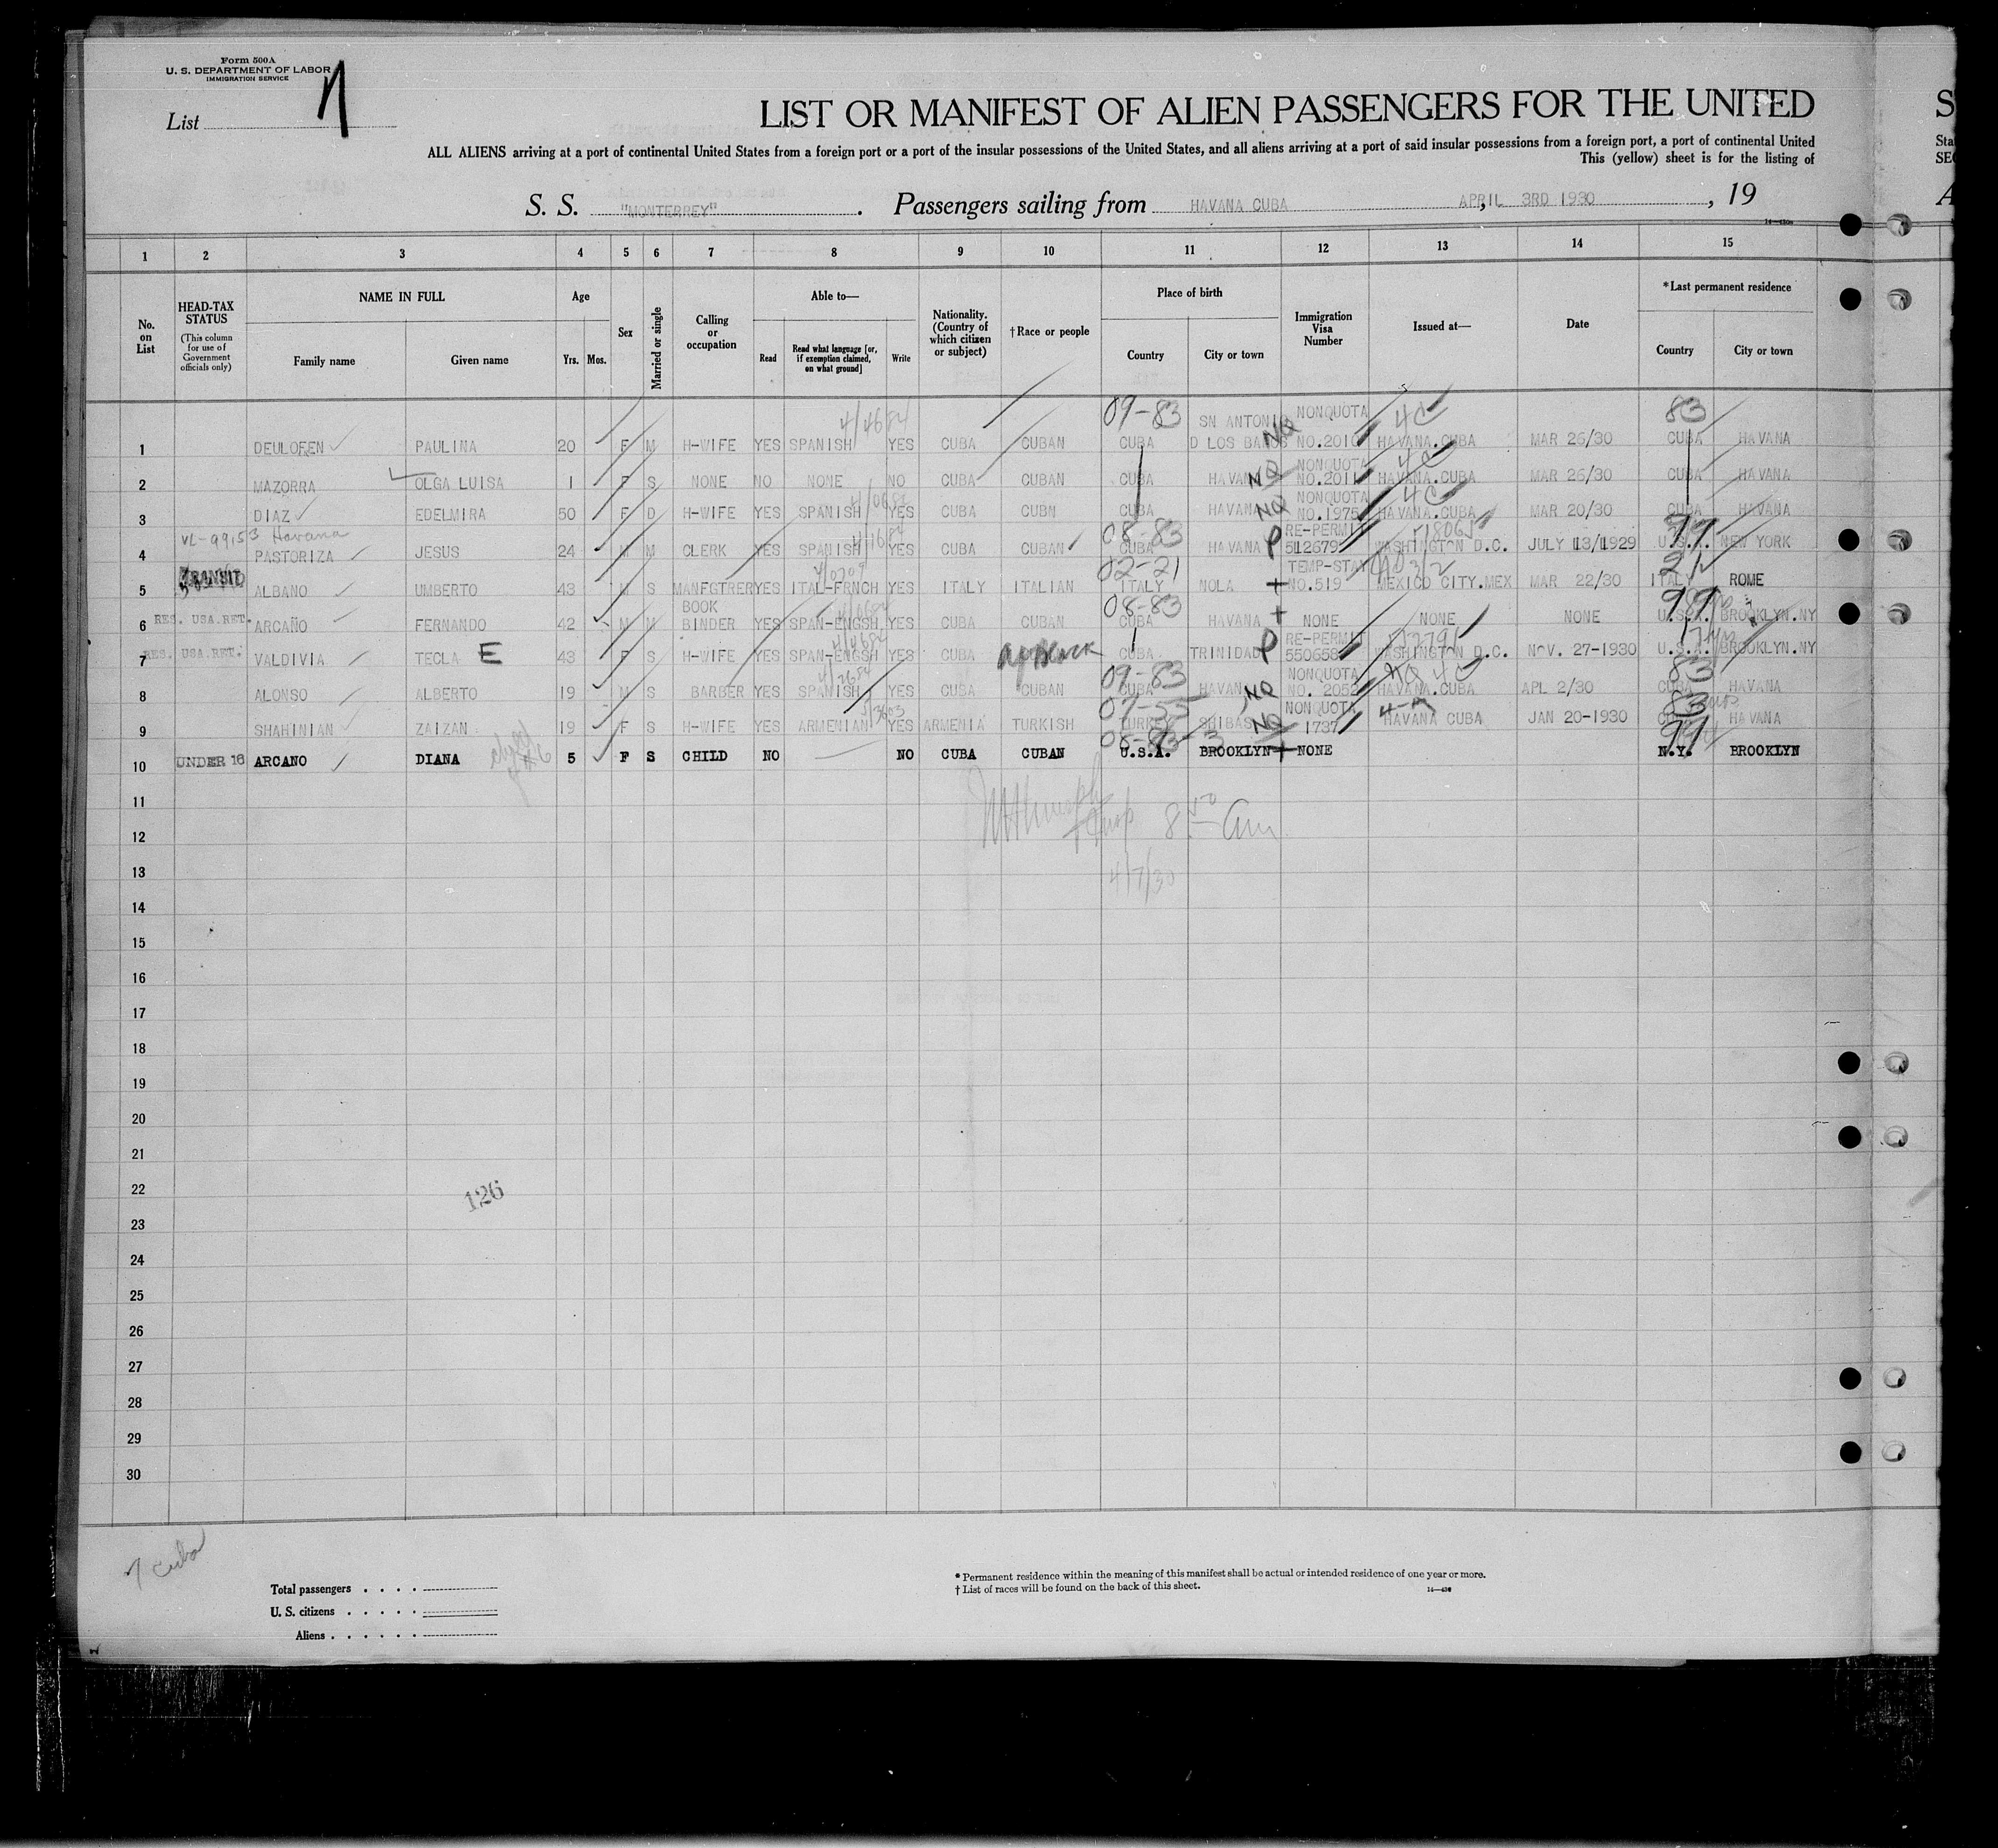 Form 500A
U. S. DEPARTMENT OF LABOR
IMMIGRATION SERVICE
List 7
LIST OR MANIFEST OF ALIEN PASSENGERS FOR THE UNITED
S
ALL ALIENS arriving at a port of continental United States from a foreign port or a port of the insular possessions of the United States, and all aliens arriving at a port of said insular possessions from a foreign port, a port of continental United
Sta
This (yellow) sheet is for the listing of
SEC
S. S. "MONTERREY". Passengers sailing from HAVANA CUBA, APRIL 3RD 1930, 19
A
1 2 3 4 5 6 7 8 9 10 11 12 13 14 15
No. on List
HEAD-TAX STATUS
(This column for use of Government officials only)
NAME IN FULL
Family name Given name
Age
Yrs. Mos.
Sex
Married or single
Calling or occupation
Able to—
Read
Read what language [or, if exemption claimed, on what ground]
Write
Nationality. (Country of which citizen or subject)
†Race or people
Place of birth
Country City or town
Immigration Visa Number
Issued at—
Date
*Last permanent residence
Country City or town
09-83 SN ANTONIO NONQUOTA 4C 83
1 DEULOFEN PAULINA 20 F M H-WIFE YES SPANISH YES CUBA CUBAN CUBA D LOS BANOS NQ NO.2010 HAVANA.CUBA MAR 26/30 CUBA HAVANA
NONQUOTA 4C
2 MAZORRA OLGA LUISA 1 F S NONE NO NONE NO CUBA CUBAN CUBA HAVANA NQ NO.2011 HAVANA.CUBA MAR 26/30 CUBA HAVANA
NONQUOTA 4C
3 DIAZ EDELMIRA 50 F D H-WIFE YES SPANISH YES CUBA CUBN CUBA HAVANA NQ NO.1975 HAVANA.CUBA MAR 20/30 CUBA HAVANA
VL-99153 Havana 08-83 RE-PERMIT 99
4 PASTORIZA JESUS 24 M M CLERK YES SPANISH YES CUBA CUBAN CUBA HAVANA P 512679 WASHINGTON D.C. JULY 13/1929 U.S.A. NEW YORK
TRANSIT 02-21 TEMP-STAY 21
5 ALBANO UMBERTO 43 M S MANFGTRER YES ITAL-FRNCH YES ITALY ITALIAN ITALY NOLA + NO.519 MEXICO CITY.MEX MAR 22/30 ITALY ROME
BOOK 08-83 99
6 RES. USA.RET. ARCAÑO FERNANDO 42 M M BINDER YES SPAN-ENGSH YES CUBA CUBAN CUBA HAVANA + NONE NONE NONE U.S.A. BROOKLYN.NY
RE-PERMIT
7 RES. USA.RET. VALDIVIA TECLA E 43 F S H-WIFE YES SPAN-ENGSH YES CUBA CUBA TRINIDAD P 550658 WASHINGTON D.C. NOV. 27-1930 U.S.A. BROOKLYN.NY
09-83 NONQUOTA 4C 83
8 ALONSO ALBERTO 19 M S BARBER YES SPANISH YES CUBA CUBAN CUBA HAVANA NQ NO. 2052 HAVANA.CUBA APL 2/30 CUBA HAVANA
NONQUOTA 83
9 SHAHINIAN ZAIZAN 19 F S H-WIFE YES ARMENIAN YES ARMENIA TURKISH TURKEY SHIBAS NQ 1737 HAVANA CUBA JAN 20-1930 CUBA HAVANA
08-83 99
10 UNDER 16 ARCANO DIANA 5 F S CHILD NO NO CUBA CUBAN U.S.A. BROOKLYN + NONE N.Y. BROOKLYN
11
12 8 50 am
13 4/7/30
14
15
16
17
18
19
20
21
22 126
23
24
25
26
27
28
29
30
7 Cuba
Total passengers . . . .
U. S. citizens . . . . .
Aliens . . . . . .
* Permanent residence within the meaning of this manifest shall be actual or intended residence of one year or more.
† List of races will be found on the back of this sheet.